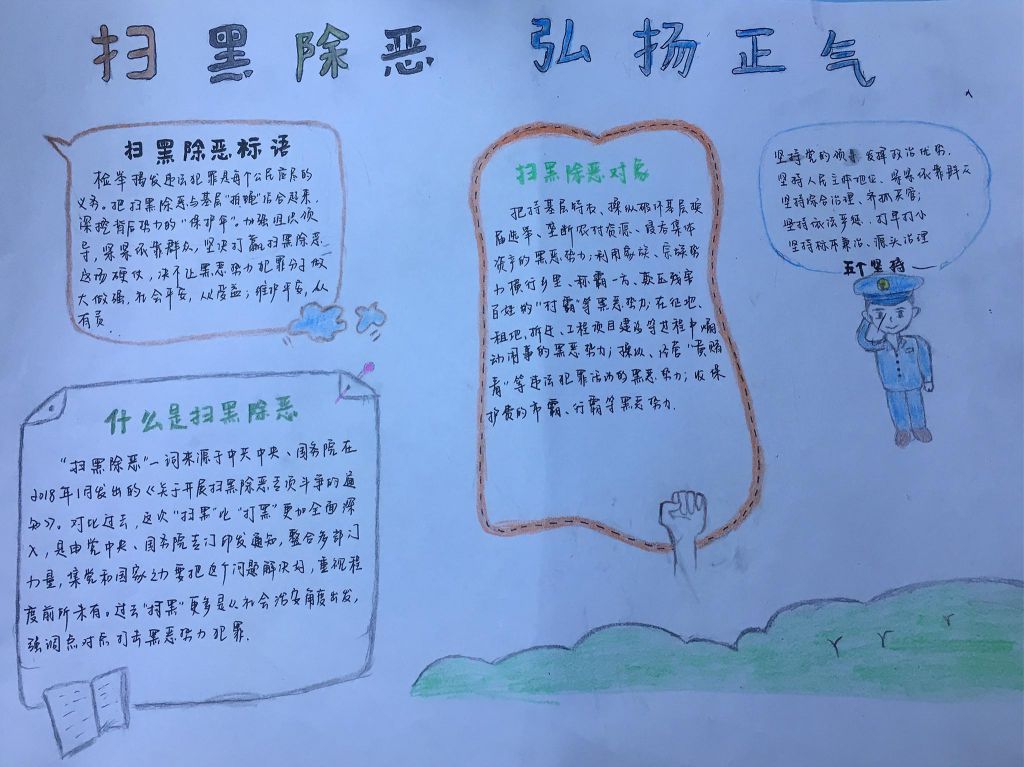 扫黑除恶 弘扬正气
扫黑除恶标语
检举揭发违法犯罪是每个公民应尽的
义务。把扫黑除恶与基层"拍蝇"结合起来,
深挖背后势力的"保护伞"。加强组织领
导,紧紧依靠群众,坚决打赢扫黑除恶
这场硬仗,决不让黑恶势力犯罪分子做
大做强,社会平安,人人受益;维护平安,人人
有责
什么是扫黑除恶
"扫黑除恶"一词来源于中共中央、国务院在
2018年1月发出的《关于开展扫黑除恶专项斗争的通
知》。对比过去,这次"扫黑"比"打黑"更加全面深
入,是由党中央、国务院专门印发通知,整合多部门
力量,集党和国家之力要把这个问题解决好,重视程
度前所未有。过去"扫黑"更多是从社会治安角度出发,
强调点对点打击黑恶势力犯罪.
扫黑除恶对象
把持基层政权、操纵破坏基层换
届选举、垄断农村资源、侵吞集体
资产的黑恶势力;利用家族、宗族势
力横行乡里、称霸一方、欺压残害
百姓的"村霸"等黑恶势力;在征地、
租地,拆迁、工程项目建设等过程中煽
动闹事的黑恶势力;操纵、经营"黄赌
毒"等违法犯罪活动的黑恶势力;收保
护费的市霸、行霸等黑恶势力.
坚持党的领导 发挥政治优势.
坚持人民主体地位、紧紧依靠群众
坚持综合治理、齐抓共管;
坚持依法严惩、打早打小
坚持标本兼治、源头治理
五个坚持